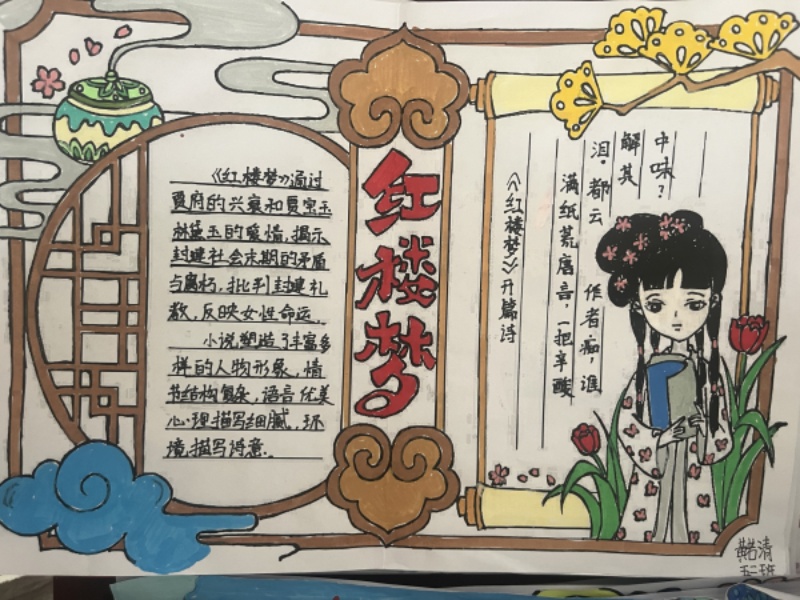 《红楼梦》通过
贾府的兴衰和贾宝玉
林黛玉的爱情,揭示
封建社会末期的矛盾
与腐朽,批判封建礼
教,反映女性命运.
小说塑造了丰富多
样的人物形象,情
节结构复杂,语音优美
心理描写细腻,环
境描写诗意.
红楼梦
《红楼梦》开篇诗
满纸荒唐音,一把辛酸
泪.都云作者痴,谁
解其
中味?
五二班